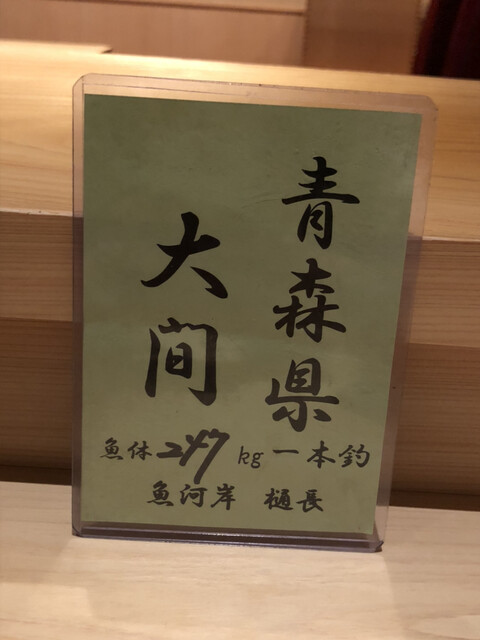 青森県
大間
魚体247kg一本釣
魚河岸 樋長